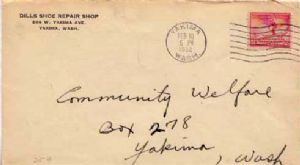 DILLS SHOE REPAIR SHOP
YAKIMA, WASH.
YAKIMA
FEB 10
5 PM
1932
WASH
Community Welfare
Box 278
Yakima,
Wash